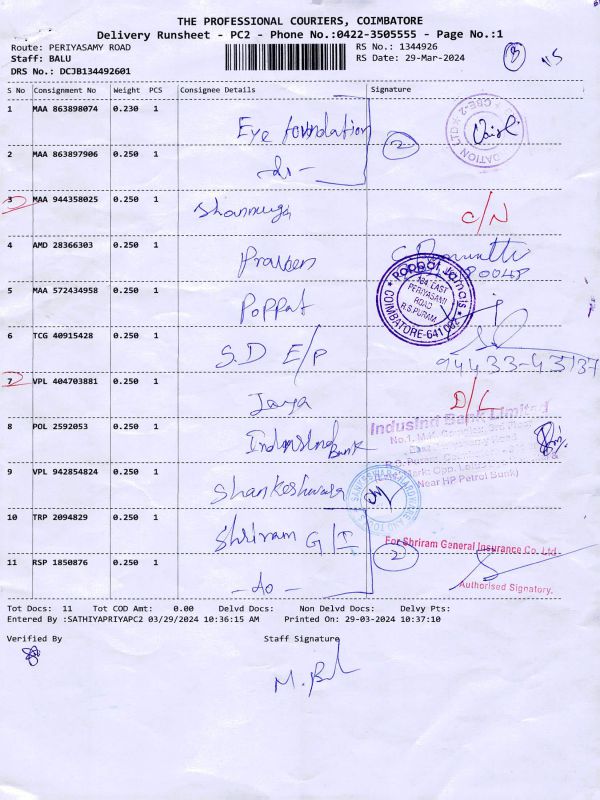 THE PROFESSIONAL COURIERS, COIMBATORE
Delivery Runsheet - PC2 - Phone No.:0422-3505555 - Page No.:1
Route: PERIYASAMY ROAD
Staff: BALU
DRS No.: DCJB134492601
RS No.: 1344926
RS Date: 29-Mar-2024
S No Consignment No Weight PCS Consignee Details Signature
1 MAA 863898074 0.230 1 Eye foundation
2 MAA 863897906 0.250 1 -do-
2
3 MAA 944358025 0.250 1 Shanmuga C/N
4 AMD 28366303 0.250 1 Praveen
5 MAA 572434958 0.250 1 Poppat
Poppat Jamals
184 EAST
PERIYASAMI
ROAD
R.S.PURAM,
COIMBATORE-641 002
6 TCG 40915428 0.250 1 S.D E/P 94433-43137
7 VPL 404703881 0.250 1 Jaya D/L
8 POL 2592053 0.250 1 IndusInd Bank
IndusInd Bank Limited
Near HP Petrol Bunk)
9 VPL 942854824 0.250 1 Shankeshwara
10 TRP 2094829 0.250 1 Shriram G/I
For Shriram General Insurance Co. Ltd.
2
11 RSP 1850876 0.250 1 -do-
Authorised Signatory.
Tot Docs: 11 Tot COD Amt: 0.00 Delvd Docs: Non Delvd Docs: Delvy Pts:
Entered By :SATHIYAPRIYAPC2 03/29/2024 10:36:15 AM Printed On: 29-03-2024 10:37:10
Verified By Staff Signature